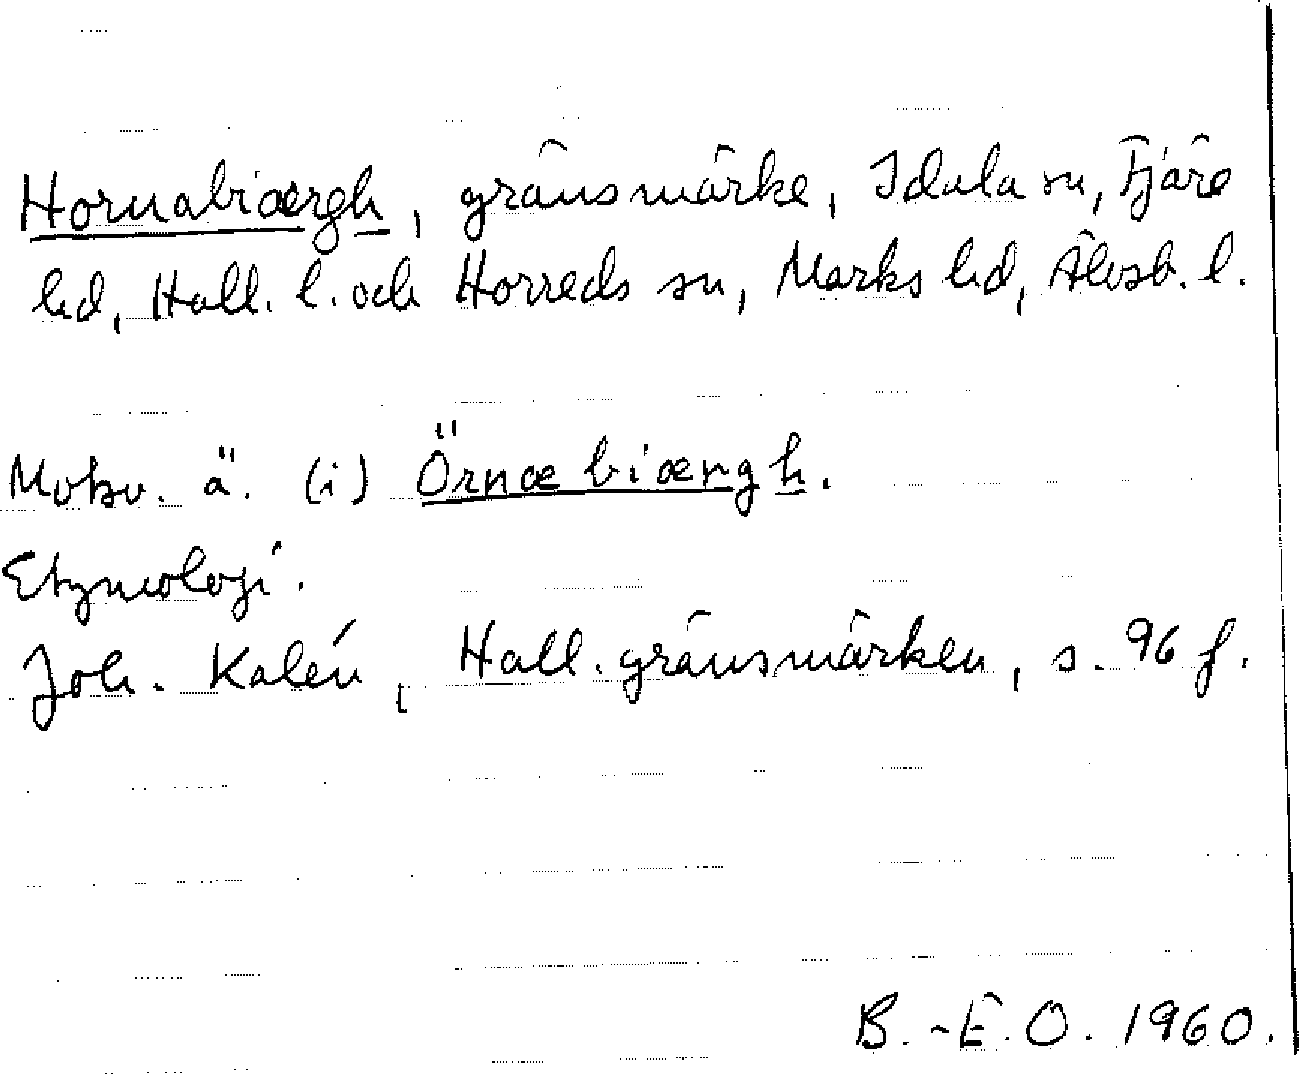 Hornabiærgh, gränsmärke, Idala sn, Fjäre
hd, Hall. l. och Horreds sn, Marks hd, Älvsb. l.
Motsv. ä. (i) Örnæ biærgh.
Etymologi.
Joh. Kalén, Hall. gränsmärken, s. 96 f.
B.-E. O. 1960.